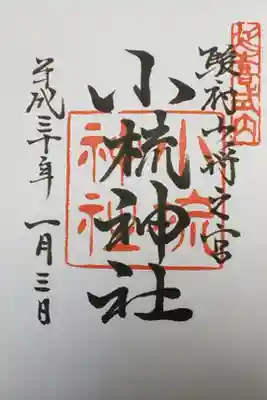 延喜式内
駿府少将之宮
小梳神社
小梳神社
平成三十年 一月三日